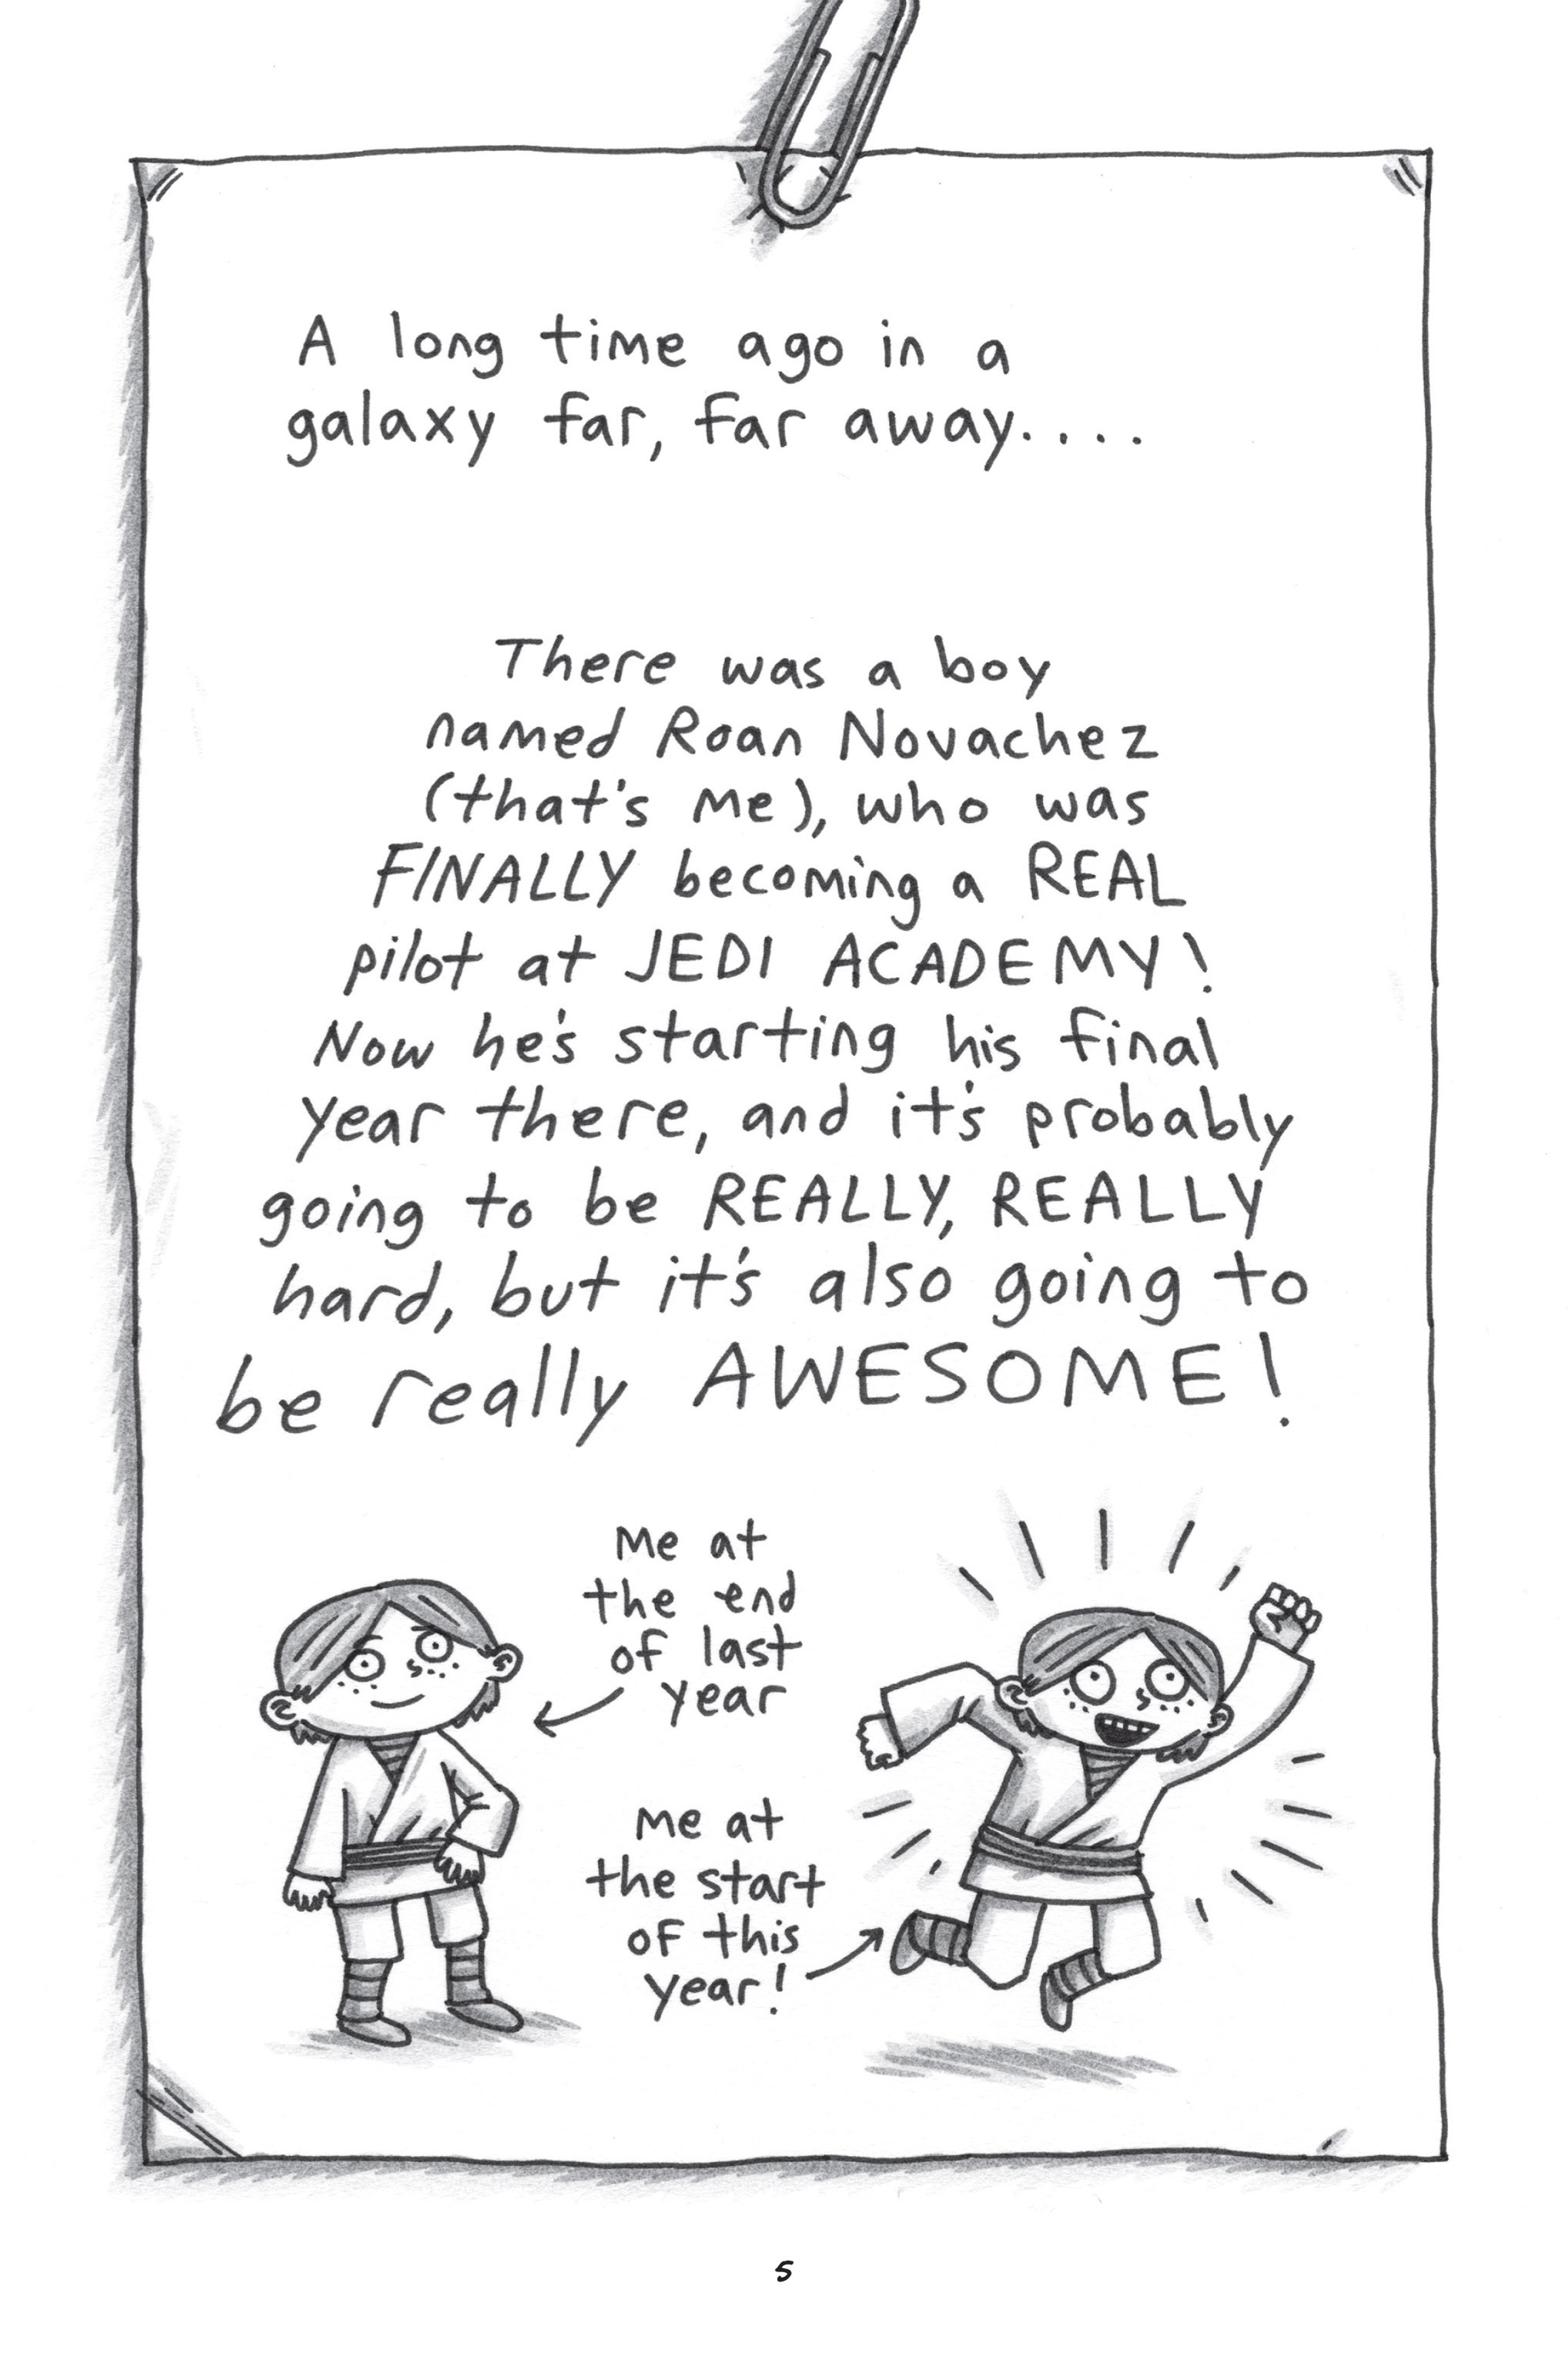 A long time ago in a
galaxy far, far away....
There was a boy
named Roan Novachez
(that's me), who was
FINALLY becoming a REAL
pilot at JEDI ACADEMY!
Now he's starting his final
year there, and it's probably
going to be REALLY, REALLY
hard, but it's also going to
be really AWESOME!
Me at
the end
of last
year
Me at
the start
of this
year!
5